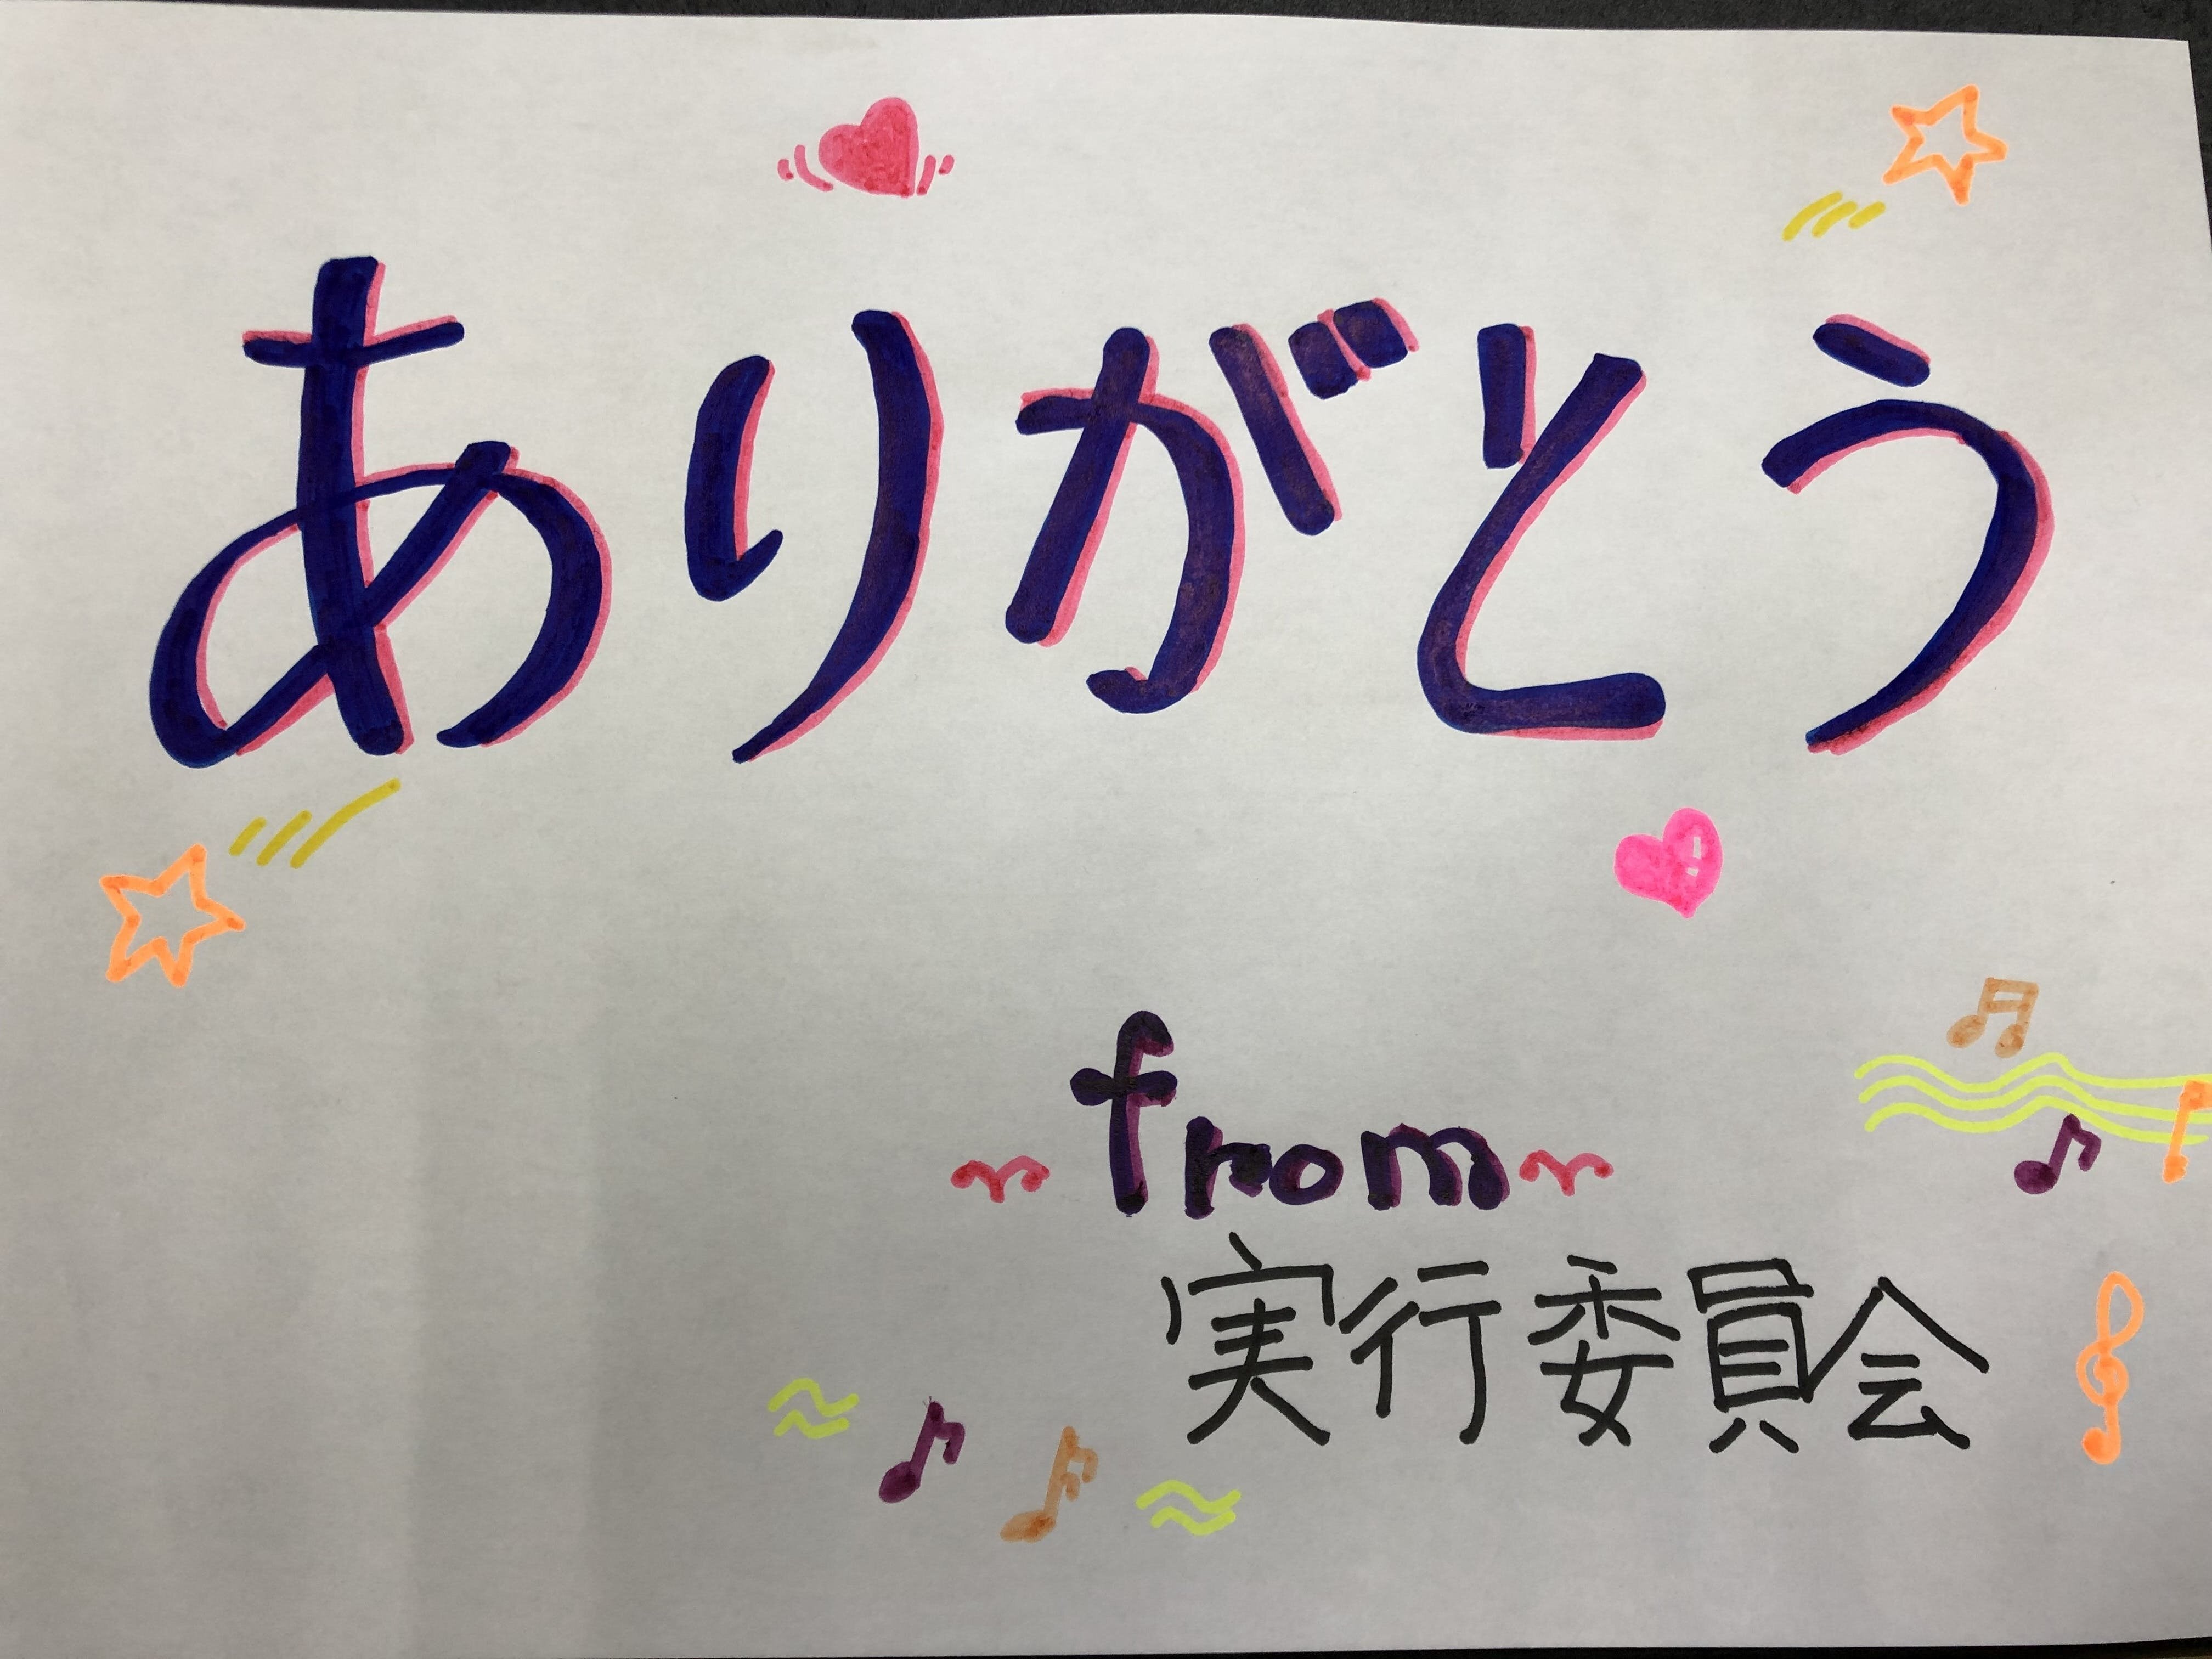 ありがとう
from
実行委員会